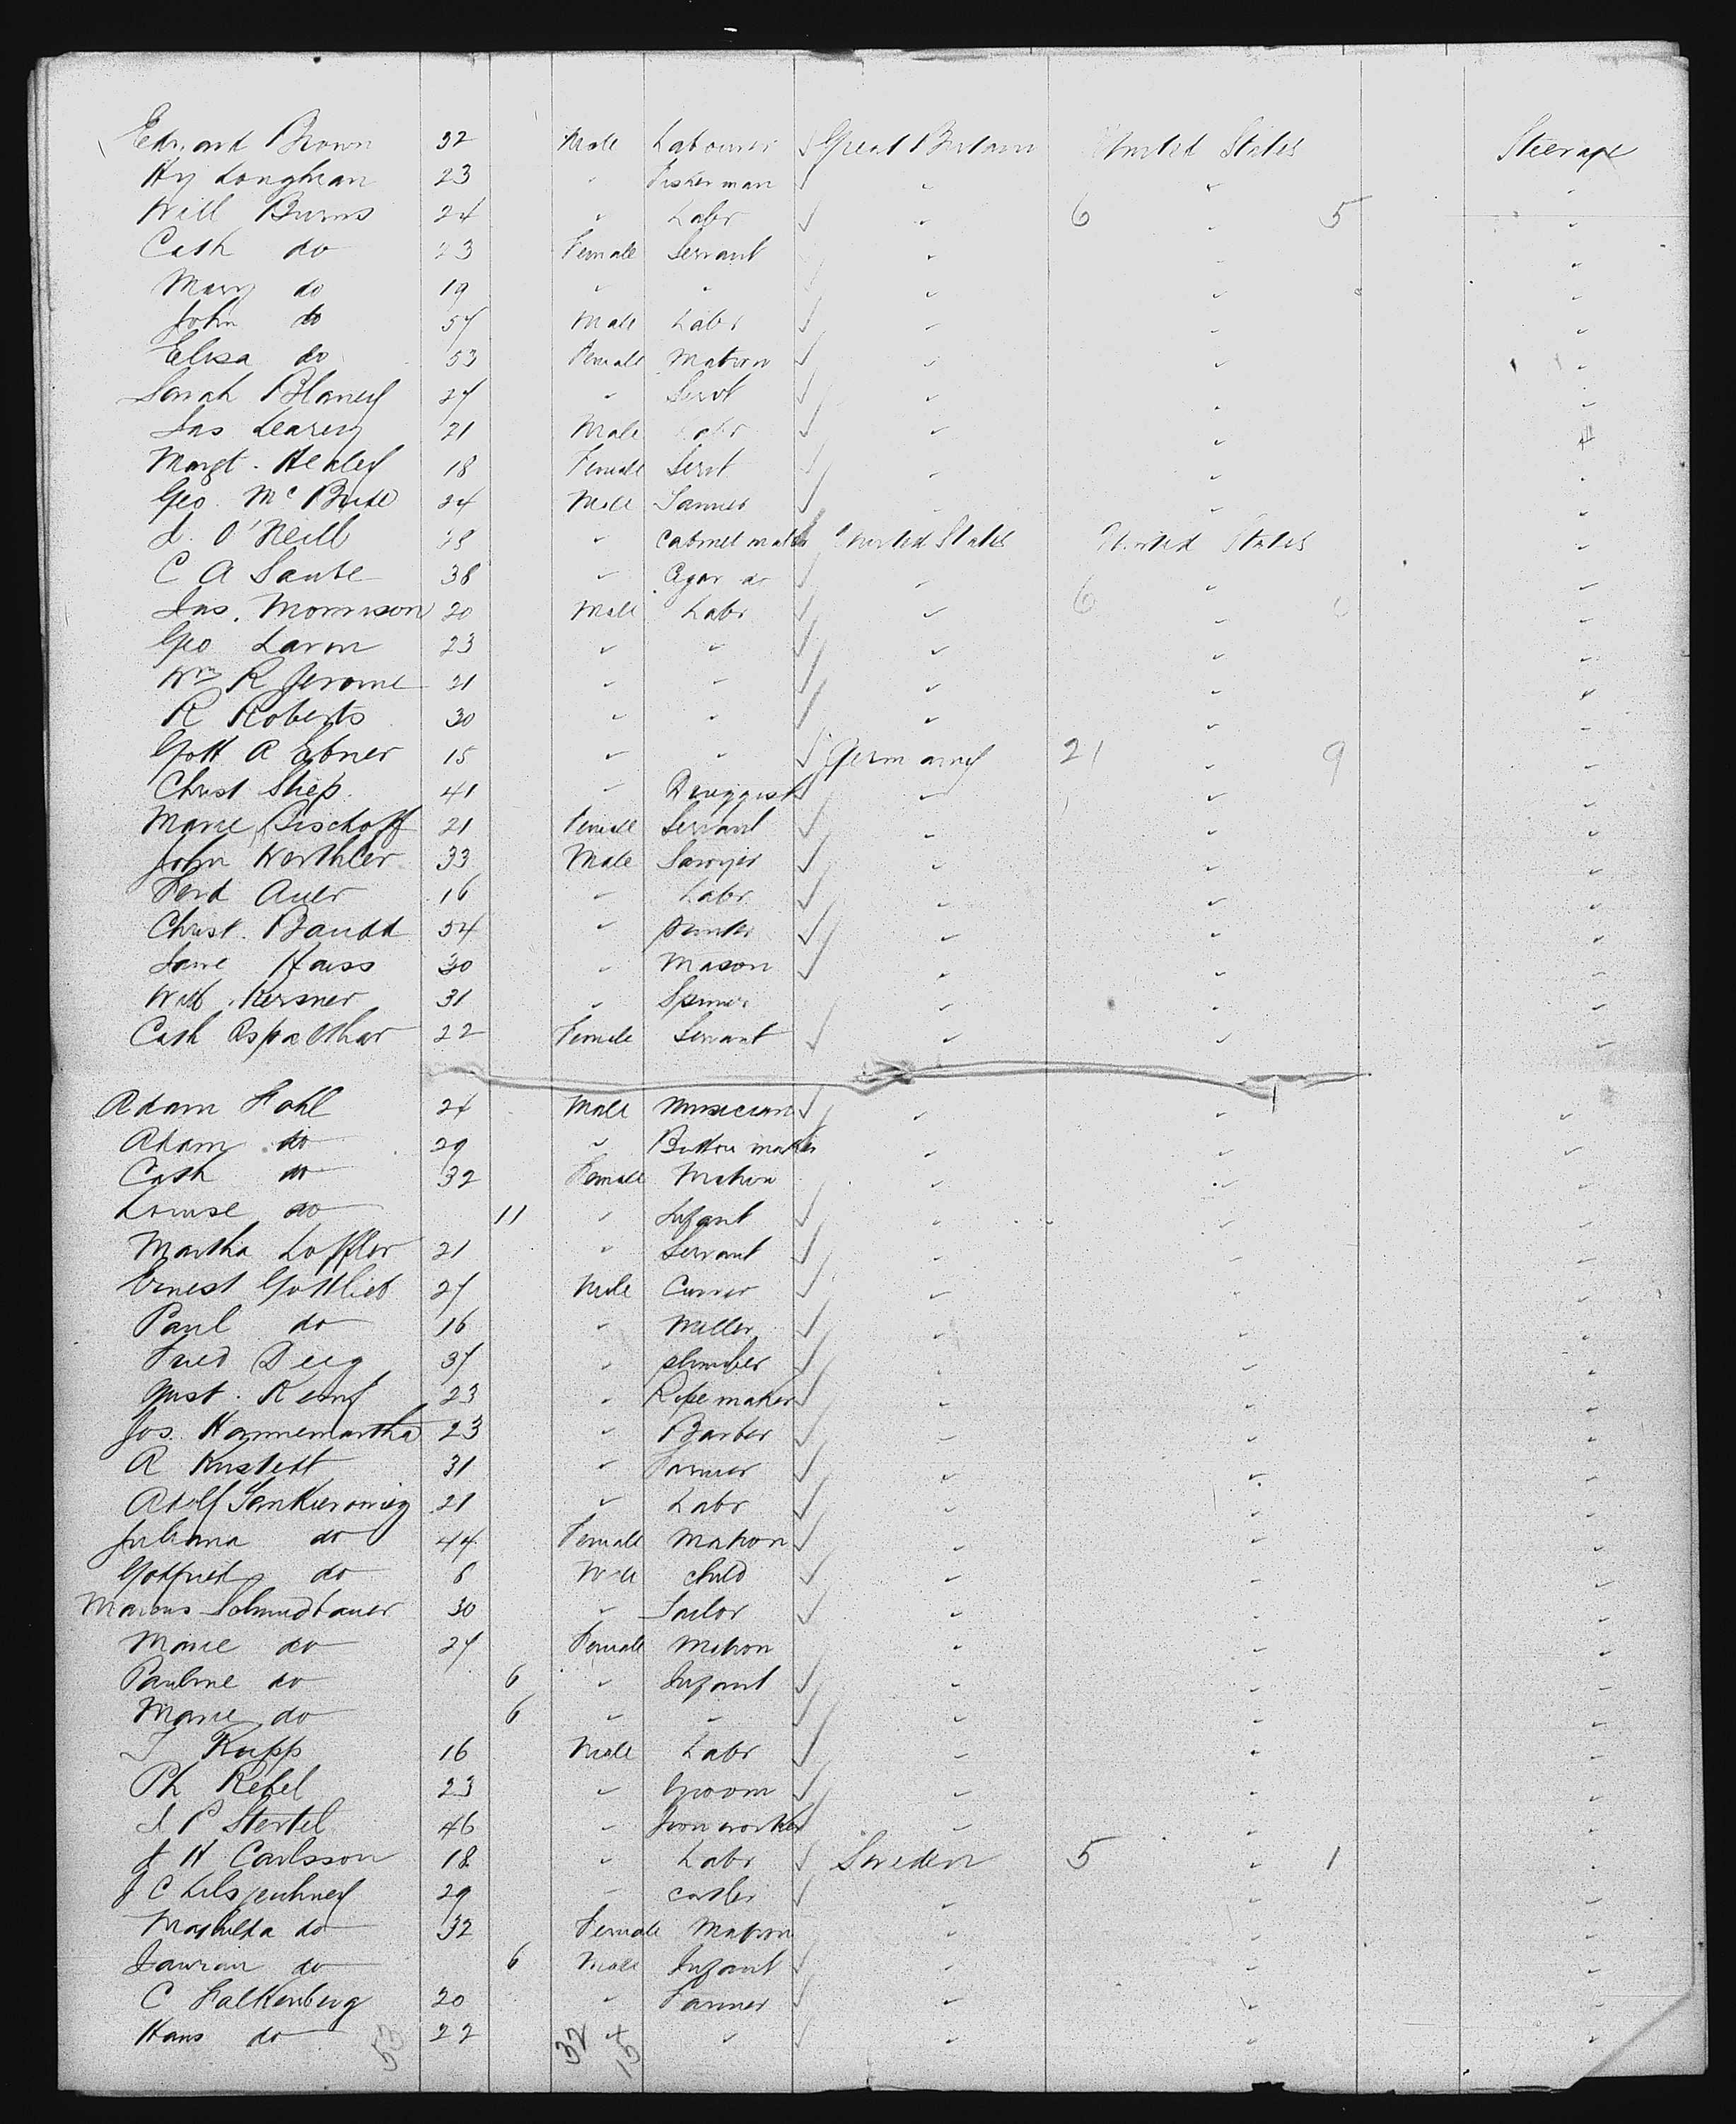 Edward Brown 32 Male Labourer Great Britain United States Steerage
Hy Loughran 23 " Fisherman " " "
Will Burns 24 " Labr " 6 " 5 "
Cath do 23 Female Servant " " "
Mary do 19 " " " " "
John do 57 Male Labr " " "
Elisa do 53 Female Matron " " "
Sarah Blaney 27 " Servt " " "
Jas Leary 21 Male Labr " " "
Margt. Healey 18 Female Servt " " "
Geo. McBride 24 Male Tanner " " "
J. O'Neill 28 " Cabinet maker United States United States "
C A Saute 38 " Cigar do " " "
Jas. Morrison 20 Male Labr " 6 " "
Geo Laron 23 " " " " "
Wm R Jerome 21 " " " " "
R Roberts 30 " " " " "
Gott A Ebner 15 " " Germany 21 " 9 "
Christ Stiep 41 " Druggist " " "
Marie Bischoff 21 Female Servant " " "
John Werthler 33 Male Sawyer " " "
Ferd Auer 16 " Labr " " "
Christ. Baudd 54 " " " "
Haiss 30 " Mason " " "
Kersner 31 " Spinner " " "
Cath 22 Female Servant " " "
Adam Fohl 24 Male Musician " " "
Adam do 29 " Button maker " " "
Cath do 32 Female Matron " " "
Louise do 11 " Infant " " "
Martha Loffler 21 " Servant " " "
Ernest Gottlieb 27 Male Currier " " "
Paul do 16 " Miller " " "
Fried Deeg 37 " plumber " " "
Gust. Kemf 23 " Ropemaker " " "
Jos. Hannemartha 23 " Barber " " "
A Kustett 31 " Farmer " " "
Adolf 21 " Labr " " "
Juliana do 44 Female Matron " " "
Gotfried do 8 Male child " " "
Marcus Schmidbauer 30 " Tailor " " "
Marie do 27 Female Matron " " "
Pauline do 6 " Infant " " "
Marie do 6 " " " " "
Rupp 16 Male Labr " " "
Ph Rebel 23 " Groom " " "
J P Stertel 46 " Iron worker " " "
J H Carlsson 18 " Labr Sweden 5 " 1 "
J C 29 " " " "
Mathilda do 32 Female Matron " " "
do 6 Male Infant " " "
C Falkenberg 20 " Farmer " " "
Hans do 22 " " " " "
53 32 15